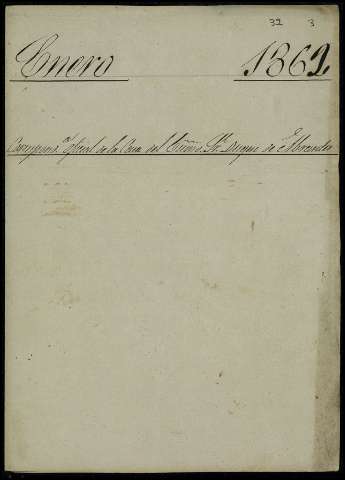 32 3
Enero 1862
Corresponda. oficial de la Casa del Excmo. Sr. Duque de Abrantes